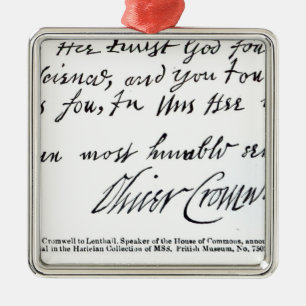 Hee trust God fou
science, and you fou
s fou, In this Hee
en most humble se
Oliver Cromw
Cromwell to Lenthall, Speaker of the House of Commons, annou
al in the Harleian Collection of MSS. British Museum, No. 750